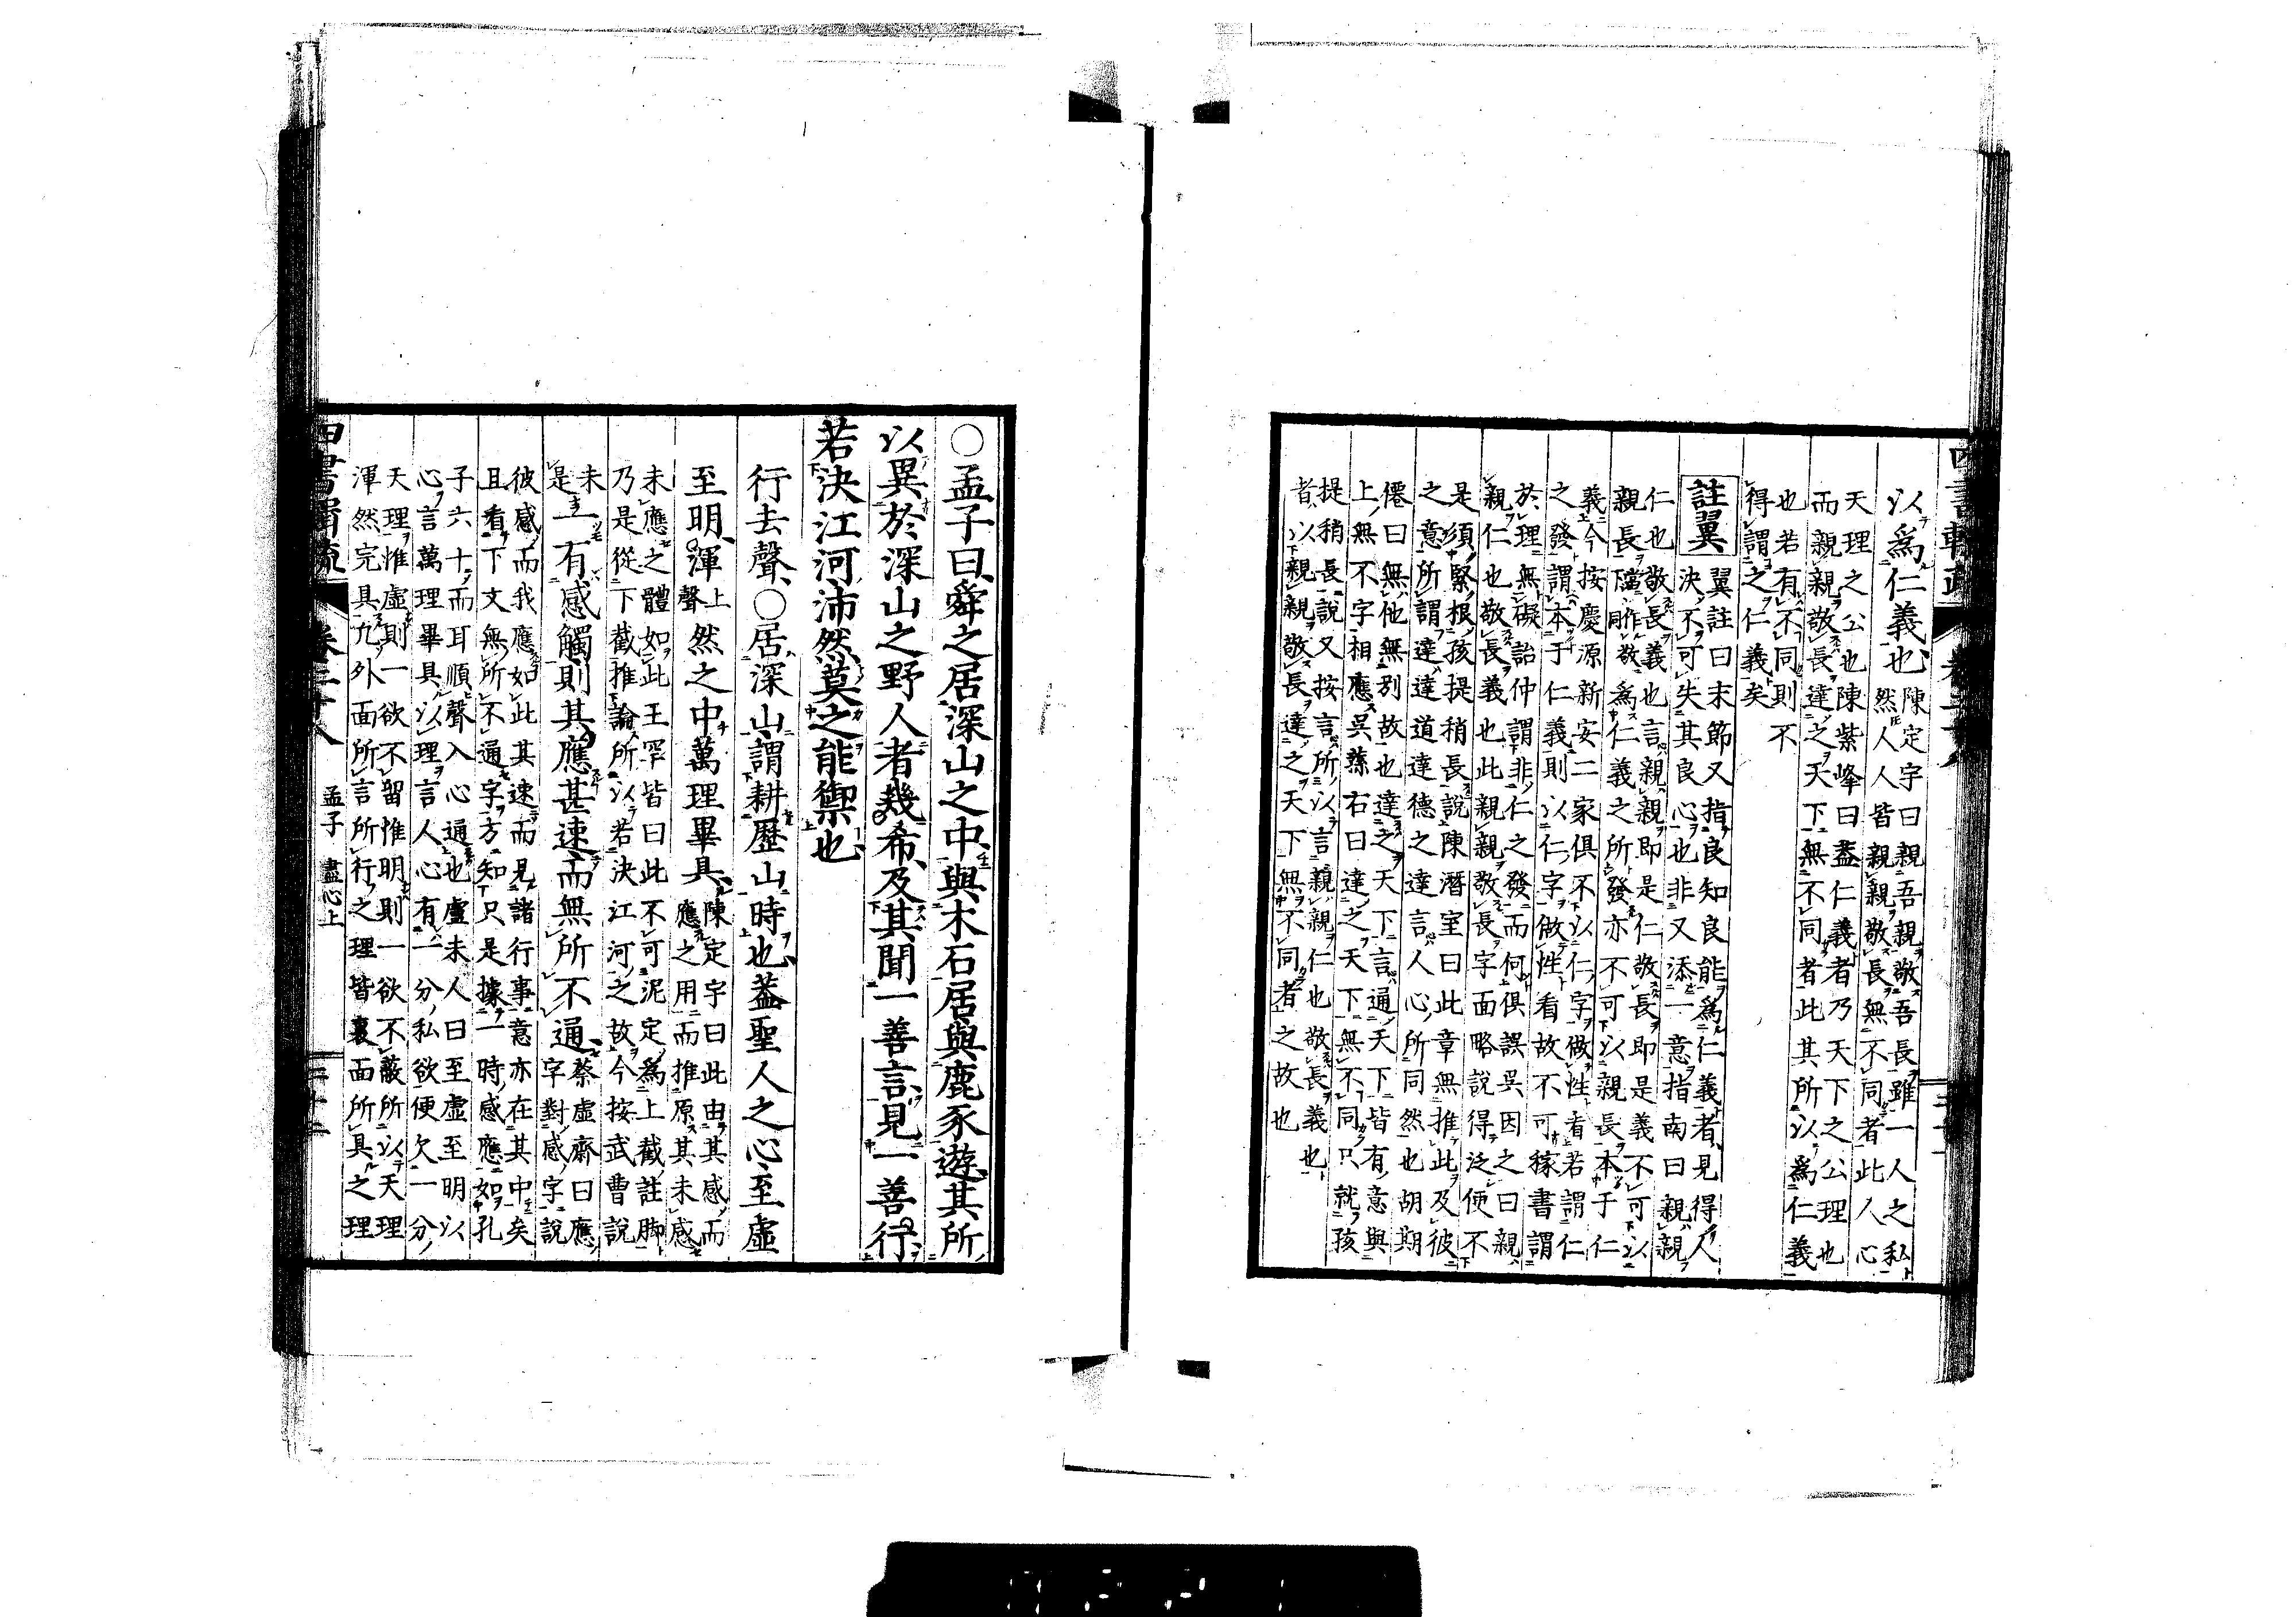 以爲仁義也陳定宇曰親吾親敬吾長雖一人之私
然人人皆親親敬長無不同者此人心
天理之公也陳紫峰曰蓋仁義者乃天下之公理也
而親親敬長達之天下無不同者此其所以爲仁義
也若有不同則不
得謂之仁義矣
註翼翼註曰末節又指良知良能爲仁義者見得人
決不可失其良心也非又添一意指南曰親親
仁也敬長義也言親親即是仁敬長即是義不可以
親長當作敬爲仁義之所發亦不可以親長本于仁
義今按慶源新安二家俱不以仁字做性看若謂仁
之發謂本于仁義則以仁字做性看故不可稼書謂
於理無礙詒仲謂非仁之發而何俱誤吳因之曰親
親仁也敬長義也此親親敬長字面略說得泛便不
是須緊根孩提稍長說陳潛室曰此章無推此及彼
之意所謂達達道達德之達言人心所同然也胡期
僊曰無他無別故也達之天下言通天下皆有意與
上無不字相應吳蓀右曰達之天下無不同只就孩
提稍長說又按言所以言親親仁也敬長義也
者以親親敬長達之天下無不同者之故也
○孟子曰舜之居深山之中與木石居與鹿豕遊其所
以異於深山之野人者幾希及其聞一善言見一善行
若決江河沛然莫之能禦也
行去聲○居深山謂耕歷山時也蓋聖人之心至虛
至明渾上聲然之中萬理畢具陳定宇曰此由其感而
應之用而推原其未感
未應之體如此王罕皆曰此不可泥定爲上截註脚
乃是從下截推論所以若決江河之故今按武曹說
未是一有感觸則其應甚速而無所不通蔡虛齋曰應
字對感字說
彼感而我應如此其速而見諸行事意亦在其中矣
且看下文無所不通字方知只是據一時感應如孔
子六十而耳順聲入心通也盧未人曰至虛至明以
心言萬理畢具以理言人心有一分私欲便欠一分
天理惟虛則一欲不留惟明則一欲不蔽所以天理
渾然完具凡外面所言所行之理皆裏面所具之理
孟子 盡心上